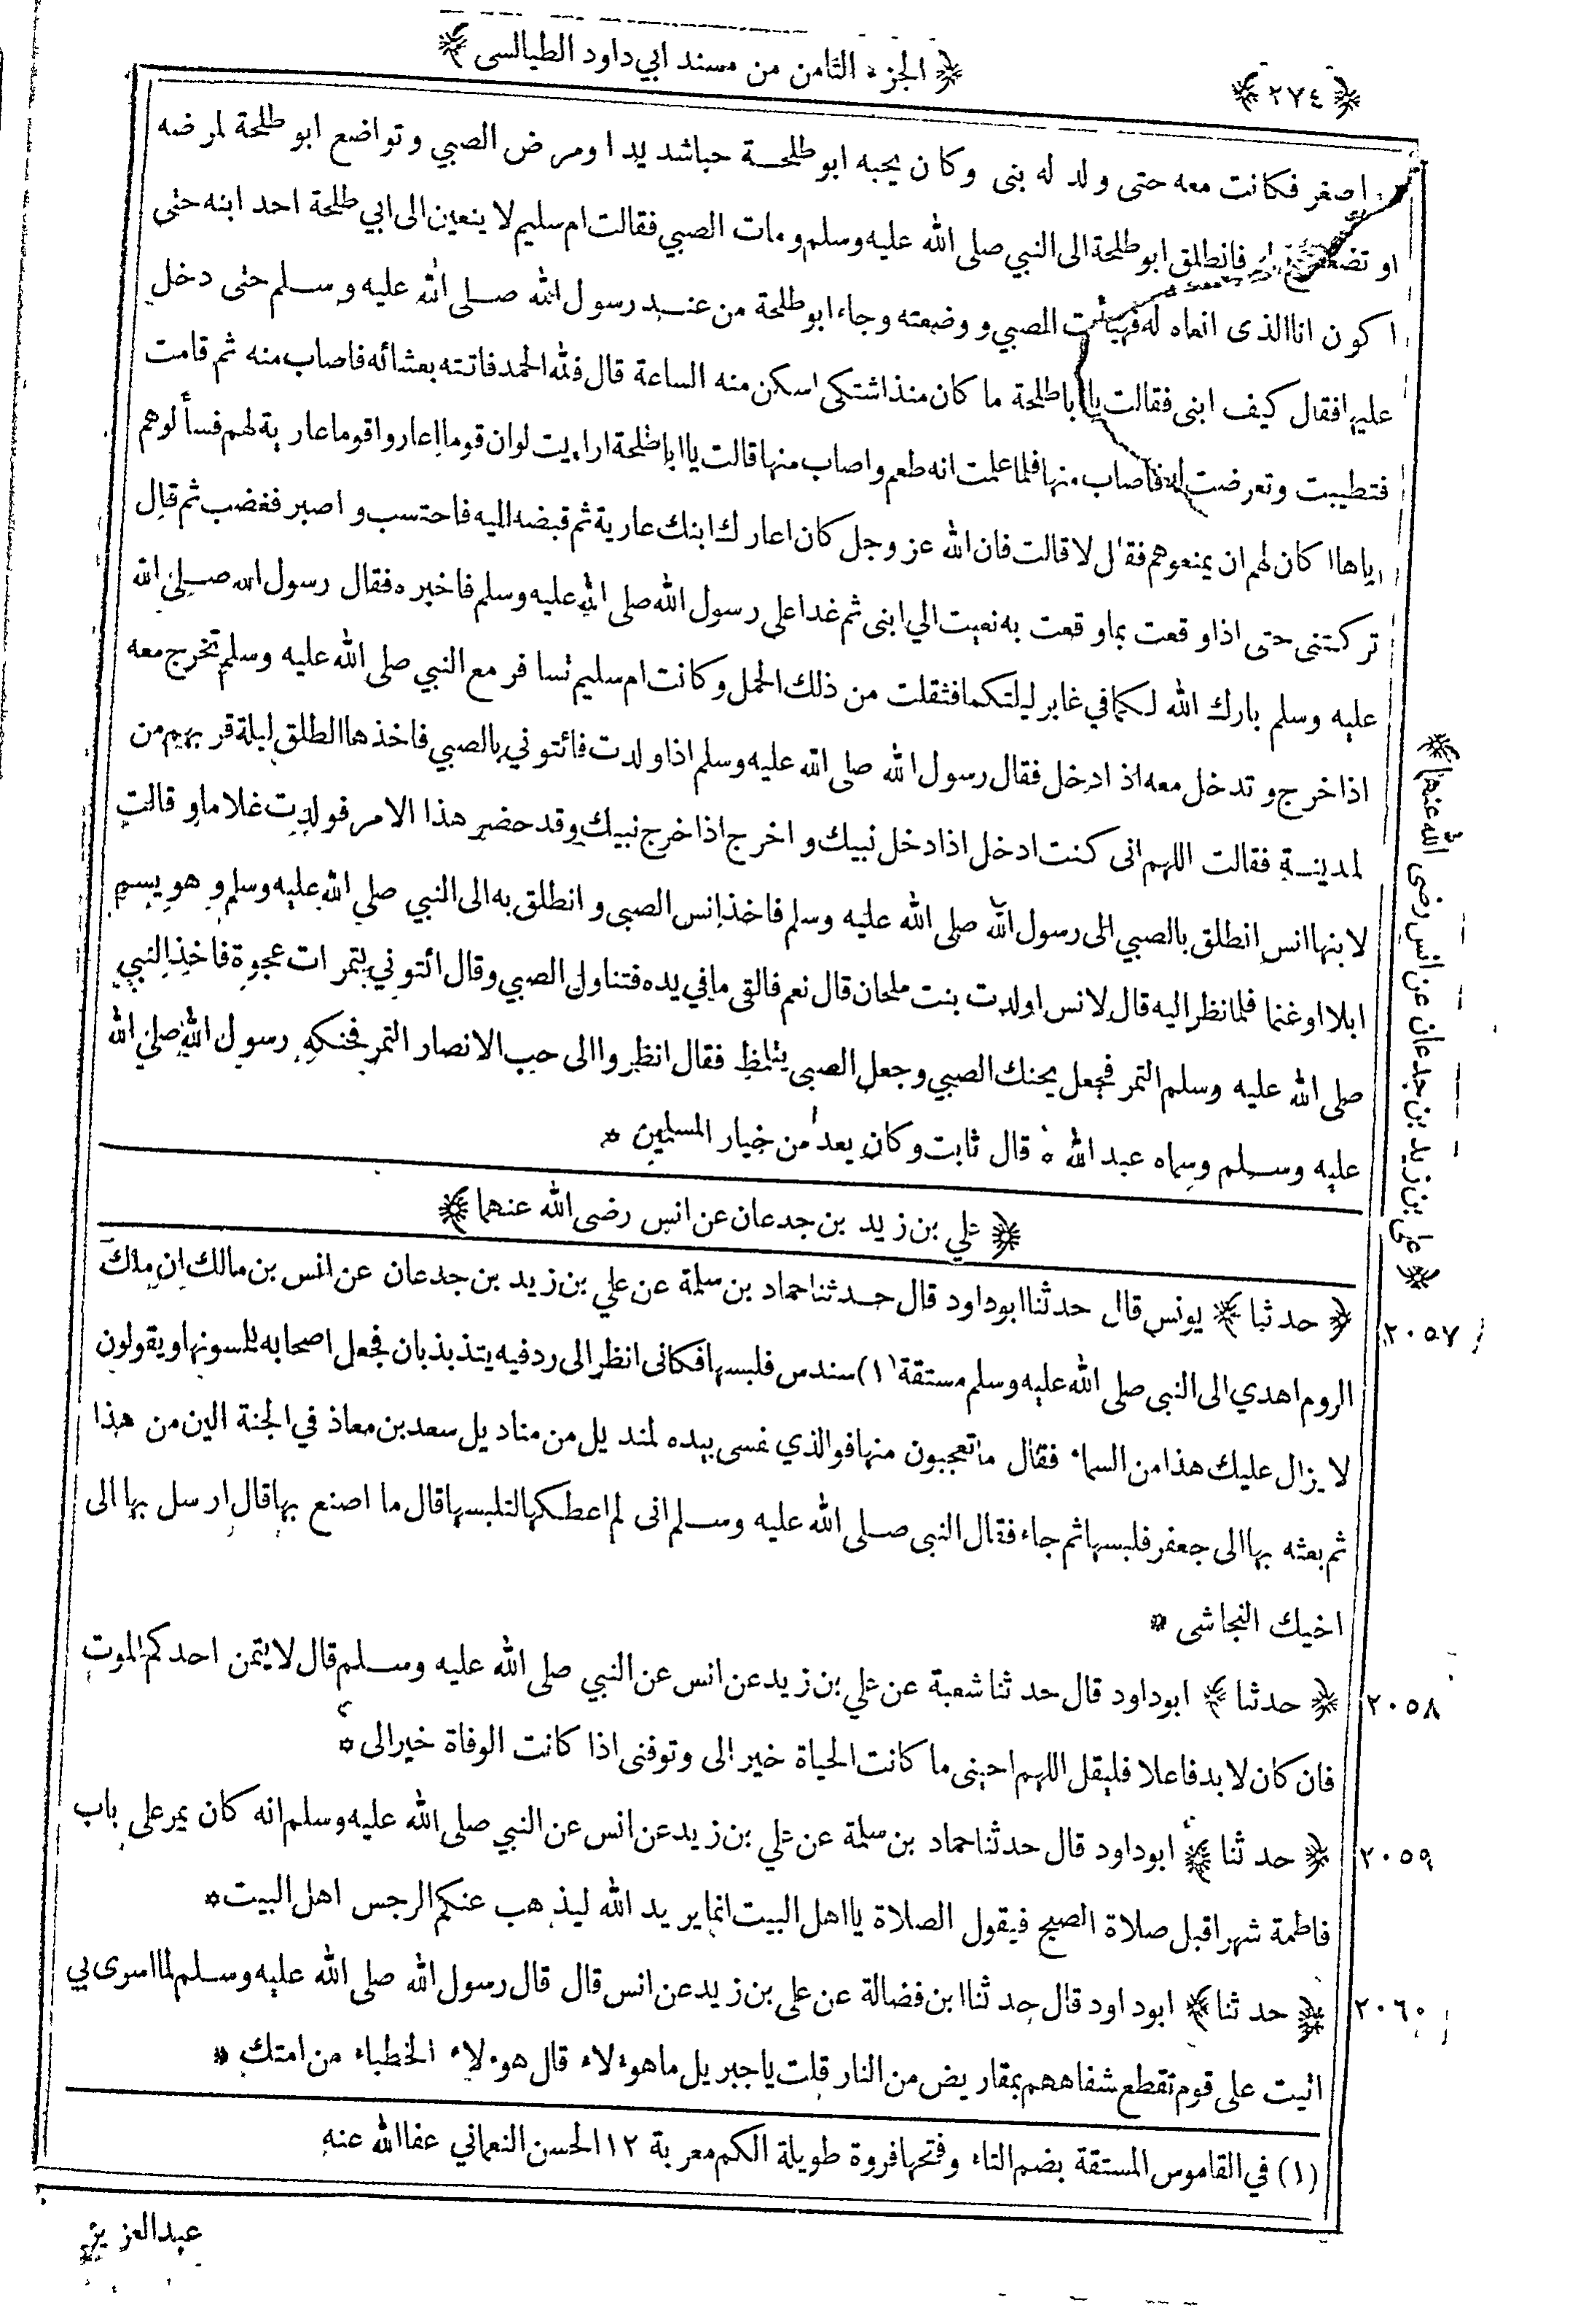 ﴿ ٢٧٤ ﴾
﴿ الجزء الثامن من مسند ابي داود الطيالسى ﴾
اصغر فكانت معه حتى ولد له بنى وكان يحبه ابو طلحة حبا شديدا ومرض الصبي وتواضع ابو طلحة لمرضه
او تضعضع له فانطلق ابو طلحة الى النبي صلى الله عليه وسلم ومات الصبي فقالت ام سليم لا ينعين الى ابي طلحة احد ابنه حتى
اكون انا الذى انعاه له فهيأت الصبي ووضعته وجاء ابو طلحة من عند رسول الله صلى الله عليه وسلم حتى دخل
عليها فقال كيف ابنى فقالت يا ابا طلحة ما كان منذ اشتكى اسكن منه الساعة قال فلله الحمد فاتته بعشائه فاصاب منه ثم قامت
فتطيبت وتعرضت له فاصاب منها فلما علمت انه طعم واصاب منها قالت يا ابا طلحة ارايت لو ان قوما اعاروا قوما عارية لهم فسألوهم
اياها اكان لهم ان يمنعوهم فقال لا قالت فان الله عز وجل كان اعارك ابنك عارية ثم قبضه اليه فاحتسب واصبر فغضب ثم قال
تركتنى حتى اذا وقعت بما وقعت به نعيت الي ابنى ثم غدا على رسول الله صلى الله عليه وسلم فاخبره فقال رسول الله صلى الله
عليه وسلم بارك الله لكما في غابر ليلتكما فثقلت من ذلك الحمل وكانت ام سليم تسافر مع النبي صلى الله عليه وسلم تخرج معه
اذا خرج وتدخل معه اذا دخل فقال رسول الله صلى الله عليه وسلم اذا ولدت فائتوني بالصبي فاخذها الطلق ليلة قربهم من
المدينة فقالت اللهم انى كنت ادخل اذا دخل نبيك واخرج اذا خرج نبيك وقد حضر هذا الامر فولدت غلاما وقالت
لابنها انس انطلق بالصبي الى رسول الله صلى الله عليه وسلم فاخذ انس الصبى وانطلق به الى النبي صلى الله عليه وسلم وهو يسم
ابلا او غنما فلما نظر اليه قال لانس اولدت بنت ملحان قال نعم فالقى ما في يده فتناول الصبي وقال ائتوني بتمرات عجوة فاخذ النبي
صلى الله عليه وسلم التمر فجعل يحنك الصبي وجعل الصبى يتلمظ فقال انظروا الى حب الانصار التمر فحنكه رسول الله صلى الله
عليه وسلم وسماه عبد الله * قال ثابت وكان يعد من خيار المسلمين *
﴿ علي بن زيد بن جدعان عن انس رضى الله عنهما ﴾
﴿ على بن زيد بن جدعان عن انس رضى الله عنهما ﴾
٢٠٥٧ ﴿ حدثنا ﴾ يونس قال حدثنا ابو داود قال حدثنا حماد بن سلمة عن علي بن زيد بن جدعان عن انس بن مالك ان ملك
الروم اهدي الى النبى صلى الله عليه وسلم مستقة (١) سندس فلبسها فكانى انظر الى ردفيه يتذبذبان فجعل اصحابه يلمسونها ويقولون
لا يزال عليك هذا من السماء فقال ما تعجبون منها فوالذي نفسى بيده لمنديل من مناديل سعد بن معاذ في الجنة الين من هذا
ثم بعثه بها الى جعفر فلبسها ثم جاء فقال النبى صلى الله عليه وسلم انى لم اعطكها لتلبسها قال ما اصنع بها قال ارسل بها الى
اخيك النجاشى *
٢٠٥٨ ﴿ حدثنا ﴾ ابو داود قال حدثنا شعبة عن علي بن زيد عن انس عن النبي صلى الله عليه وسلم قال لا يتمن احدكم الموت
فان كان لا بد فاعلا فليقل اللهم احينى ما كانت الحياة خيرا لى وتوفنى اذا كانت الوفاة خيرا لى *
٢٠٥٩ ﴿ حدثنا ﴾ ابو داود قال حدثنا حماد بن سلمة عن علي بن زيد عن انس عن النبي صلى الله عليه وسلم انه كان يمر على باب
فاطمة شهرا قبل صلاة الصبح فيقول الصلاة يا اهل البيت انما يريد الله ليذهب عنكم الرجس اهل البيت *
٢٠٦٠ ﴿ حدثنا ﴾ ابو داود قال حدثنا ابن فضالة عن على بن زيد عن انس قال قال رسول الله صلى الله عليه وسلم لما اسرى بي
اتيت على قوم تقطع شفاههم بمقاريض من النار قلت يا جبريل ما هؤلاء قال هؤلاء الخطباء من امتك *
(١) في القاموس المستقة بضم التاء وفتحها فروة طويلة الكم معربة ١٢ الحسن النعماني عفا الله عنه
عبد العزيز